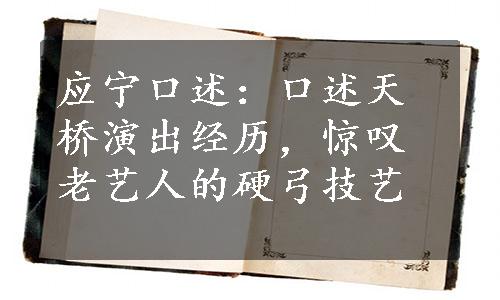 应宁口述：口述天
桥演出经历，惊叹
老艺人的硬弓技艺